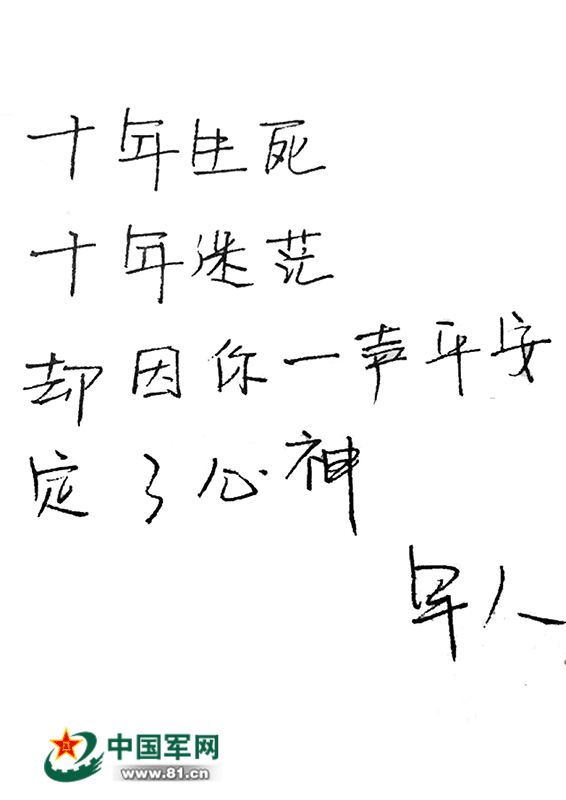 十年生死
十年迷茫
却因你一声平安
定了心神
军人
中国军网
www.81.cn